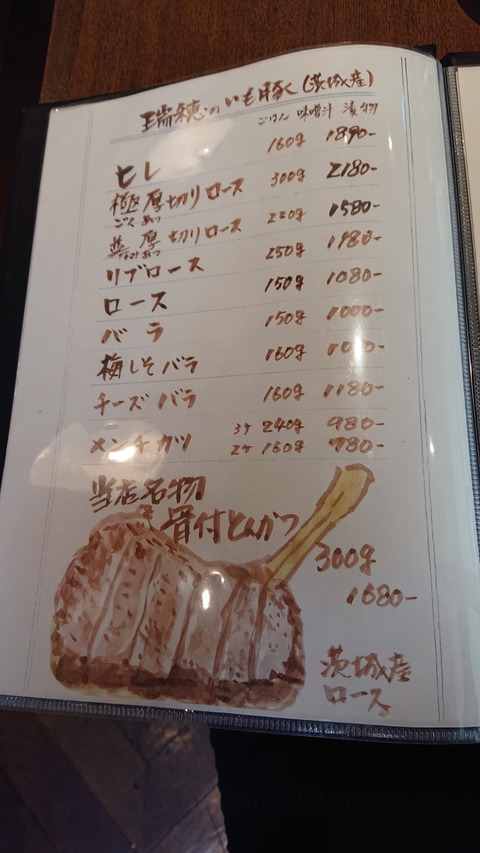 瑞穂のいも豚(茨城産)
ごはん 味噌汁 漬物
ヒレ 160g 1890-
極厚切りロース 300g 2180-
ごくあつ
並厚切りロース 220g 1580-
なみあつ
リブロース 250g
ロース 150g 1080-
バラ 150g 1000-
梅しそバラ 160g
チーズバラ 160g 1180-
メンチカツ 3ケ 240g 980-
2ケ 160g 780-
当店名物
骨付とんかつ
300g
1680-
茨城産
ロース